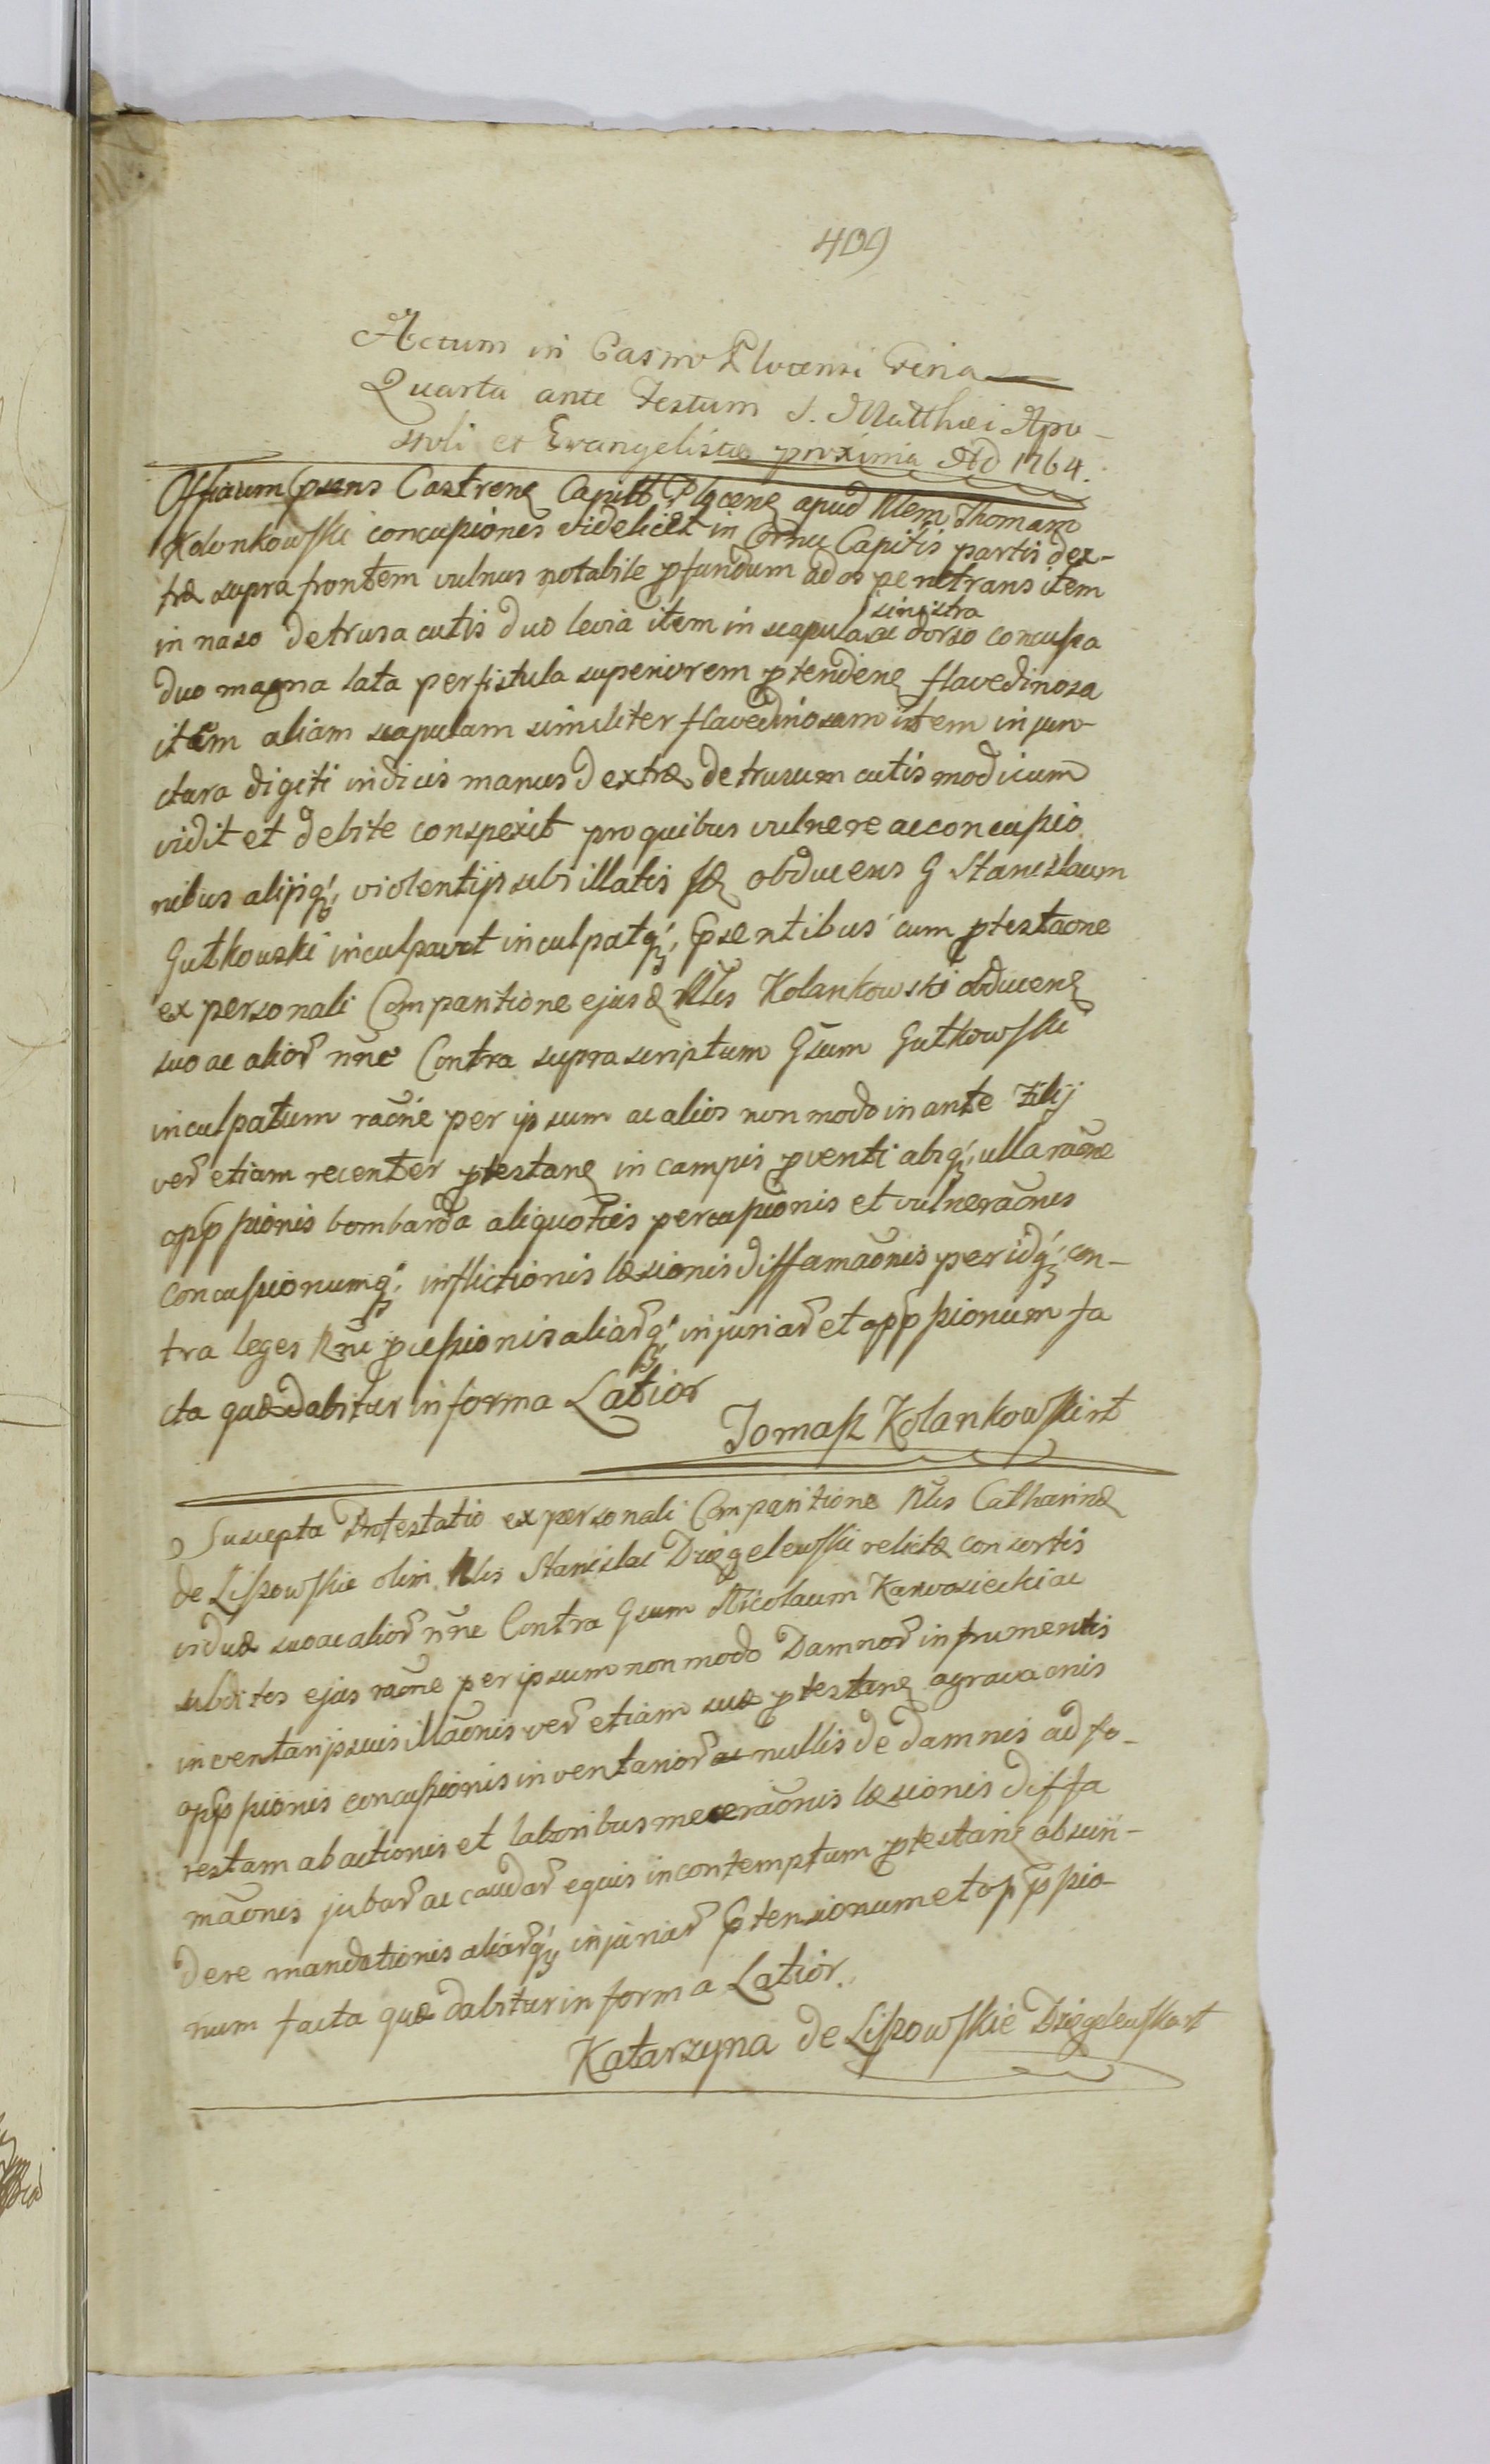 409
Actum in Castro Plocensi Feria
Quarta ante Festum S. Matthæi Apo-
stoli et Evangelistæ proxima Ad 1764.
Officium Pnsens Castrenę Capitł Plocenę apud Nlem Thomam
Kolankowski concusſiones videlicet in Cornu Capitis partis dex-
træ supra frontem vulnus notabile pfundum ad os penetrans item
in naso detrusa cutis duo levia item in scapula sinistra ac dorso concusſa
duo magna lata per fistula superiorem ptendenę flavedinosa
item aliam scapulam similiter flavedinosam item in jun-
ctura digiti indicis manus dextræ detrusum cutis modicum
vidit et debite conspexit pro quibus vulnere ac concusſio
nibus alijsq; violentijs sibi illatis sę obducens G Stanislaum
Gutkowski inculpavit inculpatq; Psentibus cum ptestaone
ex personali Comparitione ejusd Nlis Kolankowski obducenę
suo ac alior nne Contra suprascriptum Gsum Gutkowski
inculpatum raone per ipsum ac alios non modo in ante
ver etiam recenter ptestanę in campis pventi absq; ulla raone
oppſsionis bombarda aliquoties percusſionis et vulneraonis
concusſionumq; inflictionis læsionis diffamaonis per idq; con-
tra leges Rni pcusſionis aliarq; injuriar et oppſsionum fa
cta quæ dabitur in forma Latior
Tomasz Kolankowski mt
Suscepta Protestatio ex personali Comparitione Nlis Catharinæ
de Liſzowskie olim Nlis Stanislai Dzięgelewski relictæ consortis
viduæ suo ac alior nne Contra Gsum Nicolaum Karwosiecki ac
subditos ejus raone per ipsum non modo Damnor in frumentis
inventarijs suis illaonis ver etiam suæ ptestanę agravaonis
oppſsionis concusſionis inventarior ac nullis de damnis ad fo-
restam abactionis et laboribus maceraonis læsionis diffa
maonis jubar ac caudar equis in contemptum ptestanę abscin-
dere mandationis aliarq; injuriar Ptensionum et oppſsio-
num facta quæ dabitur in forma Latior.
Katarzyna de Liſzowskie Dzięgelewska mt